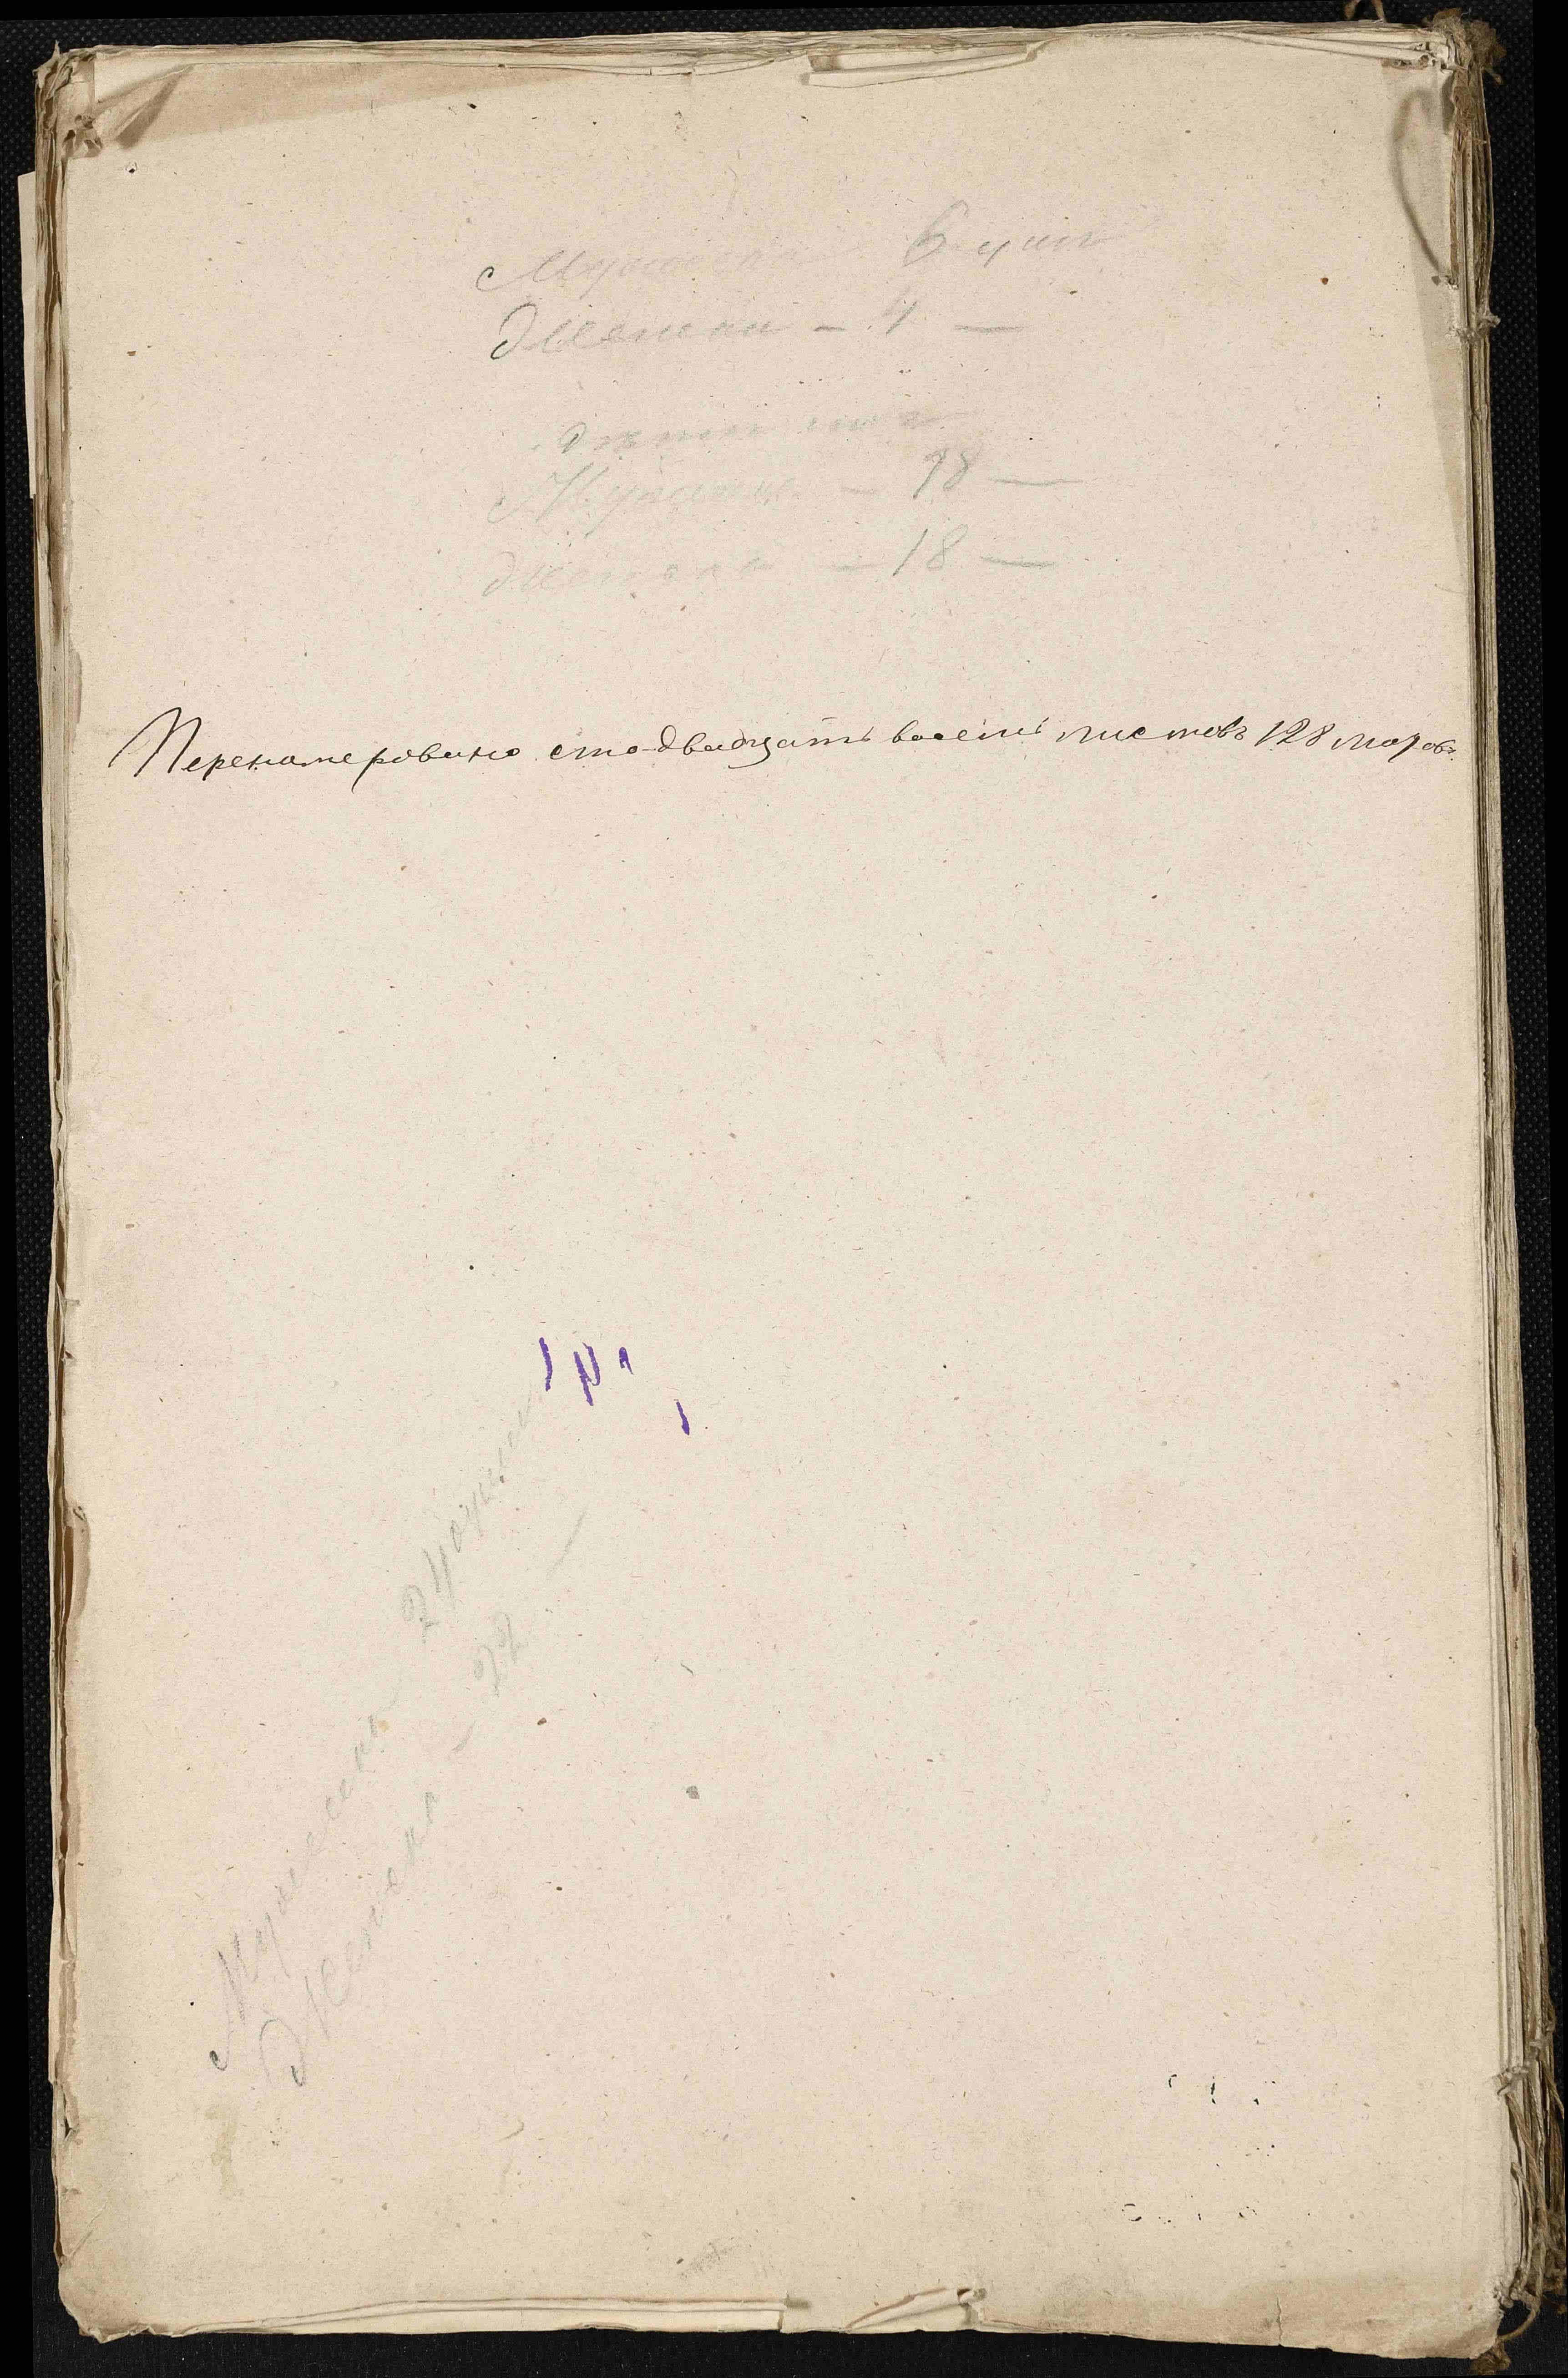 Мужска 6 душ
Женска - 4 —
Мужска - 18 —
Женска - 18 —
Перенамеровано сто двадцать восемь листовъ 128
Мужеска 24 души
Женска - 22 —